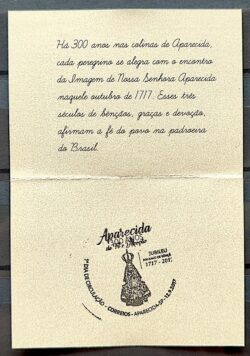 Há 300 anos nas colinas de Aparecida,
cada peregrino se alegra com o encontro
da Imagem de Nossa Senhora Aparecida
naquele outubro de 1717. Esses três
séculos de bênçãos, graças e devoção,
afirmam a fé do povo na padroeira
do Brasil.
Aparecida
JUBILEU
1717 - 2017
1º DIA DE CIRCULAÇÃO - CORREIOS - APARECIDA-SP